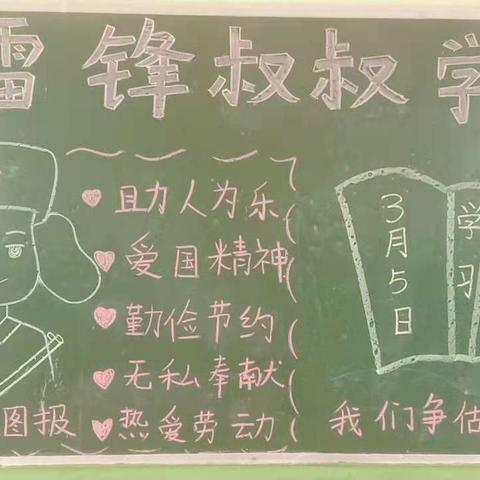 雷锋叔叔学
助人为乐
爱国精神
勤俭节约
无私奉献
热爱劳动
图报
3月5日
学习
我们争做